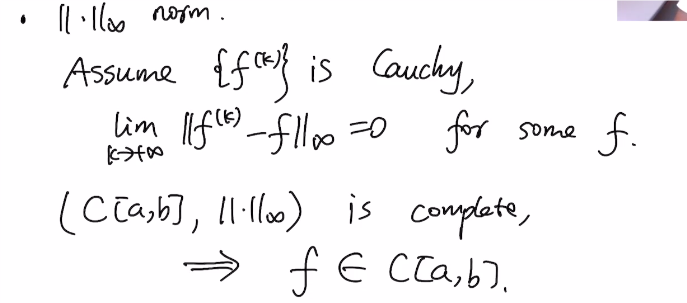 • ||·||∞ norm.
Assume {f^(k)} is Cauchy,
lim k→+∞ ||f^(k) - f||∞ = 0 for some f.
(C[a,b], ||·||∞) is complete,
⟹ f ∈ C[a,b].